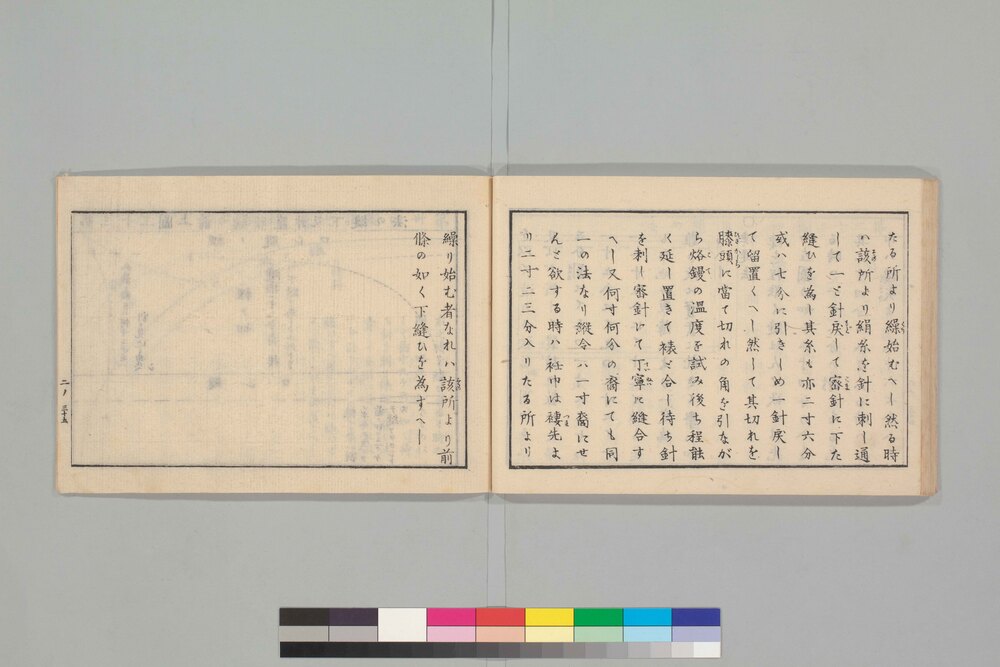 たる所より繰始むへし然る時
ハ該所より絹糸を針に刺し通
して一ど針戻して密針に下た
縫ひを為し其糸も亦二寸六分
或ハ七分に引きしめ一針戻し
て留置くへし然して其切れを
膝頭に當て切れの角を引なが
ら烙鏝の温度を試み後ち程能
く延し置きて裱ど合し待ち針
を刺し密針にて丁寧に縫合す
へし又何寸何分の裔にても同
一の法なり縱令ハ一寸裔にせ
んと欲する時ハ衽巾は褄先よ
り二寸二三分入りたる所より
繰り始む者なれハ該所より前
條の如く下縫ひを為すへし
二ノ 三十五